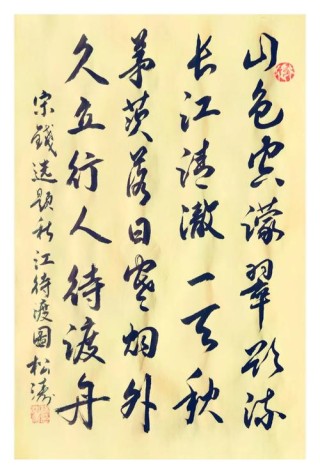 山色空濛翠欲流
长江清澈一天秋
茅茨落日寒烟外
久立行人待渡舟
宋錢选题秋江待渡图 松涛